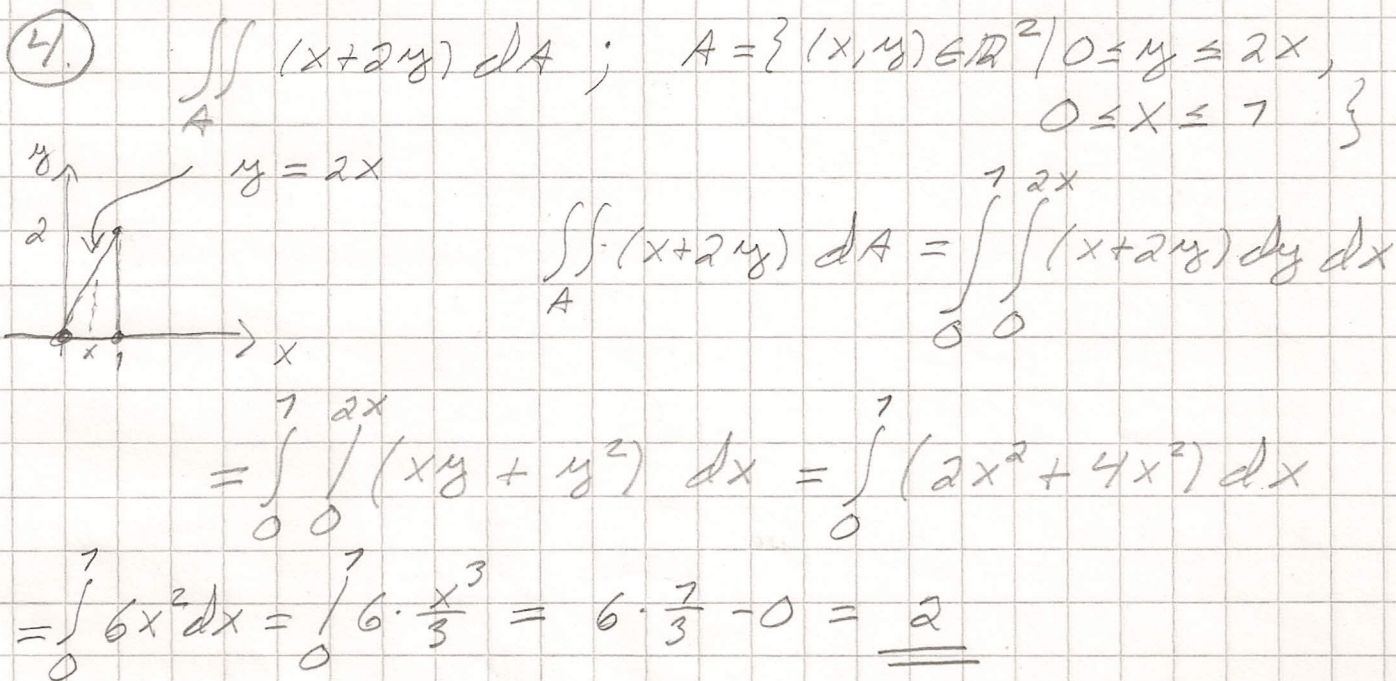 4. ∬_A (x+2y) dA ; A = { (x,y) ∈ ℝ² | 0 ≤ y ≤ 2x ,
0 ≤ x ≤ 1 }
y
y = 2x
2
x 1 x
∬_A (x+2y) dA = ∫_0^1 ∫_0^{2x} (x+2y) dy dx
= ∫_0^1 /_0^{2x} (xy + y²) dx = ∫_0^1 (2x² + 4x²) dx
= ∫_0^1 6x² dx = /_0^1 6 · x³/3 = 6 · 1/3 - 0 = 2